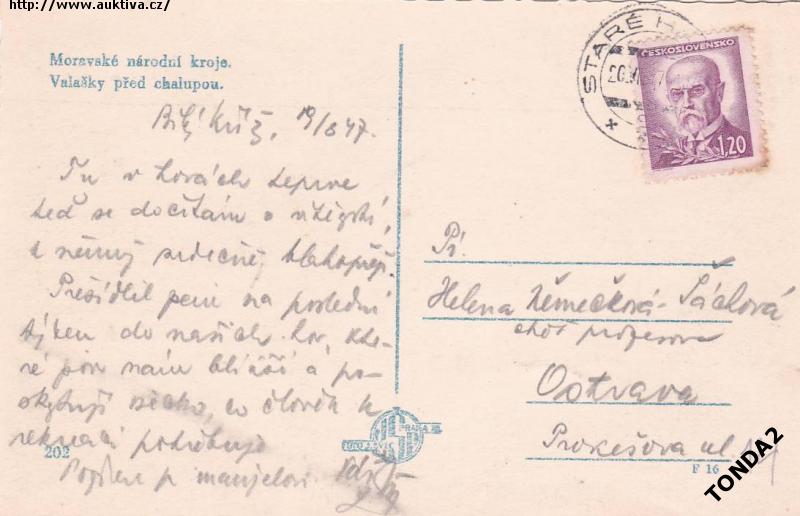 http://www.auktiva.cz/
Moravské národní kroje.
Valašky před chalupou.
Bílý Kříž, 19/8 47.
Tu v horách teprve
teď se dočítám o
a srdečně blahopřeji.
Přesídlil jsem na poslední
týden do našich hor, kte-
ré jsou nám bližší a po-
skytují všeho, co člověk k
rekreaci potřebuje
Pozdrav p. manželovi
202
FOTO
PRAHA
STARÉ H
ČESKOSLOVENSKO
1,20
Pí.
Helena Němečková-Šáchová
choť profesora
Ostrava
Prokešova ul.
F 16
TONDA2